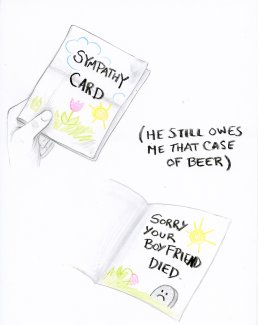 SYMPATHY
CARD
(HE STILL OWES
ME THAT CASE
OF BEER)
SORRY
YOUR
BOYFRIEND
DIED.